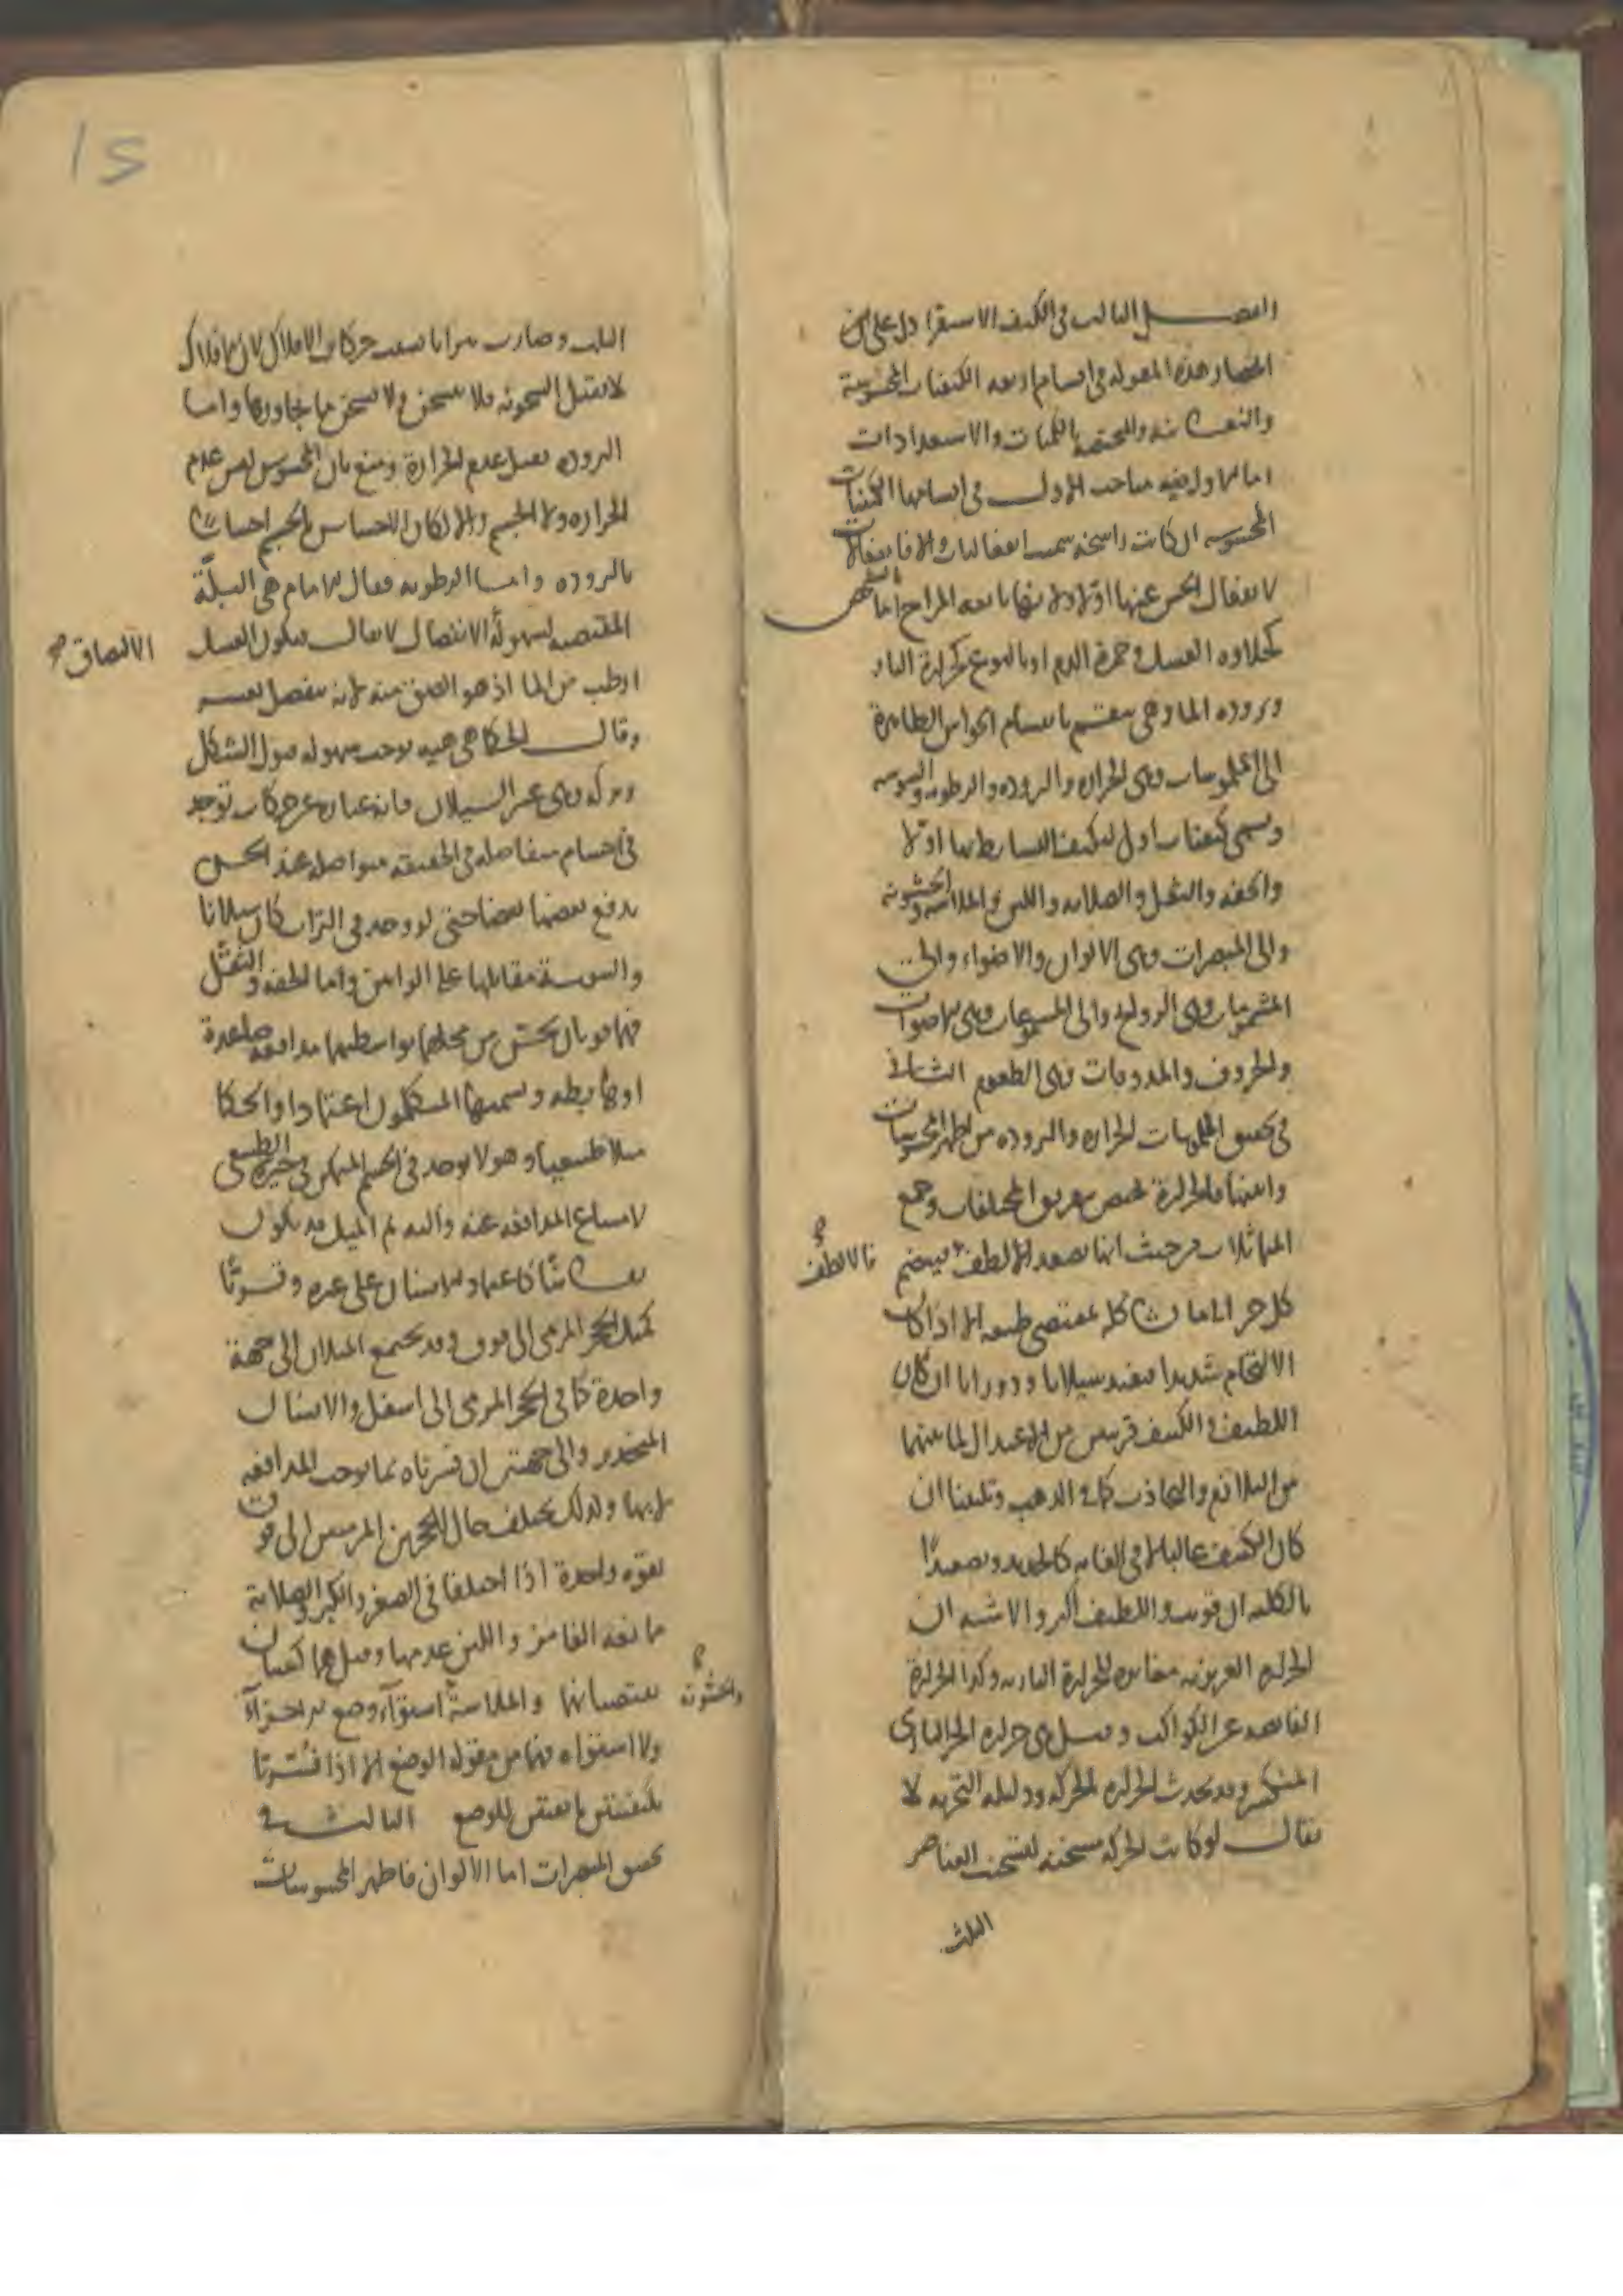 الفصل الثالث في الكيف الاستقراء دل على
انحصار هذه المقولة في اقسام اربعة الكيفيات المحسوسة
والنفسانية والمختصة بالكميات والاستعدادات
اما الاول ففيه مباحث الاول في اقسامها الكيفيات
المحسوسة ان كانت راسخة سميت انفعاليات والا فانفعالات
لانفعال الحس عنها اولا ولانها تابعة المزاج اما بالشخص
كحلاوة العسل وحمرة الدم او بالنوع كحرارة النار
وبرودة الماء وهي تنقسم بانقسام الحواس الظاهرة
الى الملموسات وهي الحرارة والبرودة والرطوبة واليبوسة
وتسمى كيفيات اول لتكيف البسايط بها اولا
والخفة والثقل والصلابة واللين والملاسة والخشونة
والى المبصرات وهي الالوان والاضواء والى
المشمومات وهي الروايح والى المسموعات وهي الاصوات
والحروف والمذوقات وهي الطعوم الثاني
في تحقيق الملموسات الحرارة والبرودة من اظهر المحسوسات
وابينها فالحرارة تختص بتفريق المختلفات وجمع
المتماثلات من حيث انها تصعد الالطف فينضم
فالالطف صح
كل جزء الى ما يشاكله بمقتضى طبعه الا اذا كان
الالتحام شديدا فيفيد سيلانا ودورانا ان كان
اللطيف والكثيف قريبين من الاعتدال لما بينهما
من التلازم والتجاذب كما في الذهب وتليينا ان
كان الكثيف غالبا لا في الغاية كالحديد وتصعيدا
بالكلية ان قويت واللطيف اكثر والاشبه ان
الحرارة الغريزية مغايرة للحرارة النارية وكذا الحرارة
الفايضة عن الكواكب وقيل هي حرارة الجزء الناري
المنكسر وقد تحدث الحرارة بالحركة ودليله التجربة لا
يقال لو كانت الحركة مسخنة لتسخنت العناصر
الثلث
الثلث وصارت نيرانا بسبب حركات الافلاك لان الافلاك
لا تقبل السخونة فلا تسخن ولا تسخن ما يجاورها واما
البرودة فقيل عدم الحرارة ومنع بان المحسوس ليس عدم
الحرارة ولا الجسم والا لكان الاحساس بالجسم احساسا
بالبرودة واما الرطوبة فقال الامام هي البلّة
المقتضية لسهولة الانفصال لا يقال فيكون العسل
الالتصاق صح
ارطب من الماء اذ هو الصق منه لانه ينفصل بعسر
وقال الحكما هي هيية توجب سهولة قبول الشكل
وتركه وهي غير السيلان فانه عبارة عن حركات توجد
في اجسام متفاصلة في الحقيقة متواصلة عند الحس
يدفع بعضها بعضا حتى لو وجد في التراب كان سيلانا
واليبوسة مقابلها على الرايين واما الخفة والثقل
فهما قوتان يحس من محلهما بواسطتهما مدافعة صاعدة
او هابطة ويسميها المتكلمون اعتمادا والحكما
ميلا طبيعيا وهو لا يوجد في الجسم المتمكن في حيزه الطبيعي
لامتناع المدافعة عنه واليه ثم الميل قد يكون
نفسانيا كاعتماد الانسان على غيره وقسريا
كميل الحجر المرمي الى فوق وقد يجتمع الميلان الى جهة
واحدة كما في الحجر المرمي الى اسفل والانسان
المنحدر والى جهتين ان فسرناه بما يوجب المدافعة
لا بها ولذلك يختلف حال الحجرين المرميين الى فوق
بقوة واحدة اذا اختلفا في الصغر والكبر والصلابة
ممانعة الغامز واللين عدمها وقيل هما كيفيتان
تقتضيانها والملاسة استواء وضع الاجزاء
والخشونة صح
ولا استواه فهما من مقولة الوضع الا اذا فسرتا
بكيفيتين تابعتين للوضع الثالث في
تحقيق المبصرات اما الالوان فاظهر المحسوسات